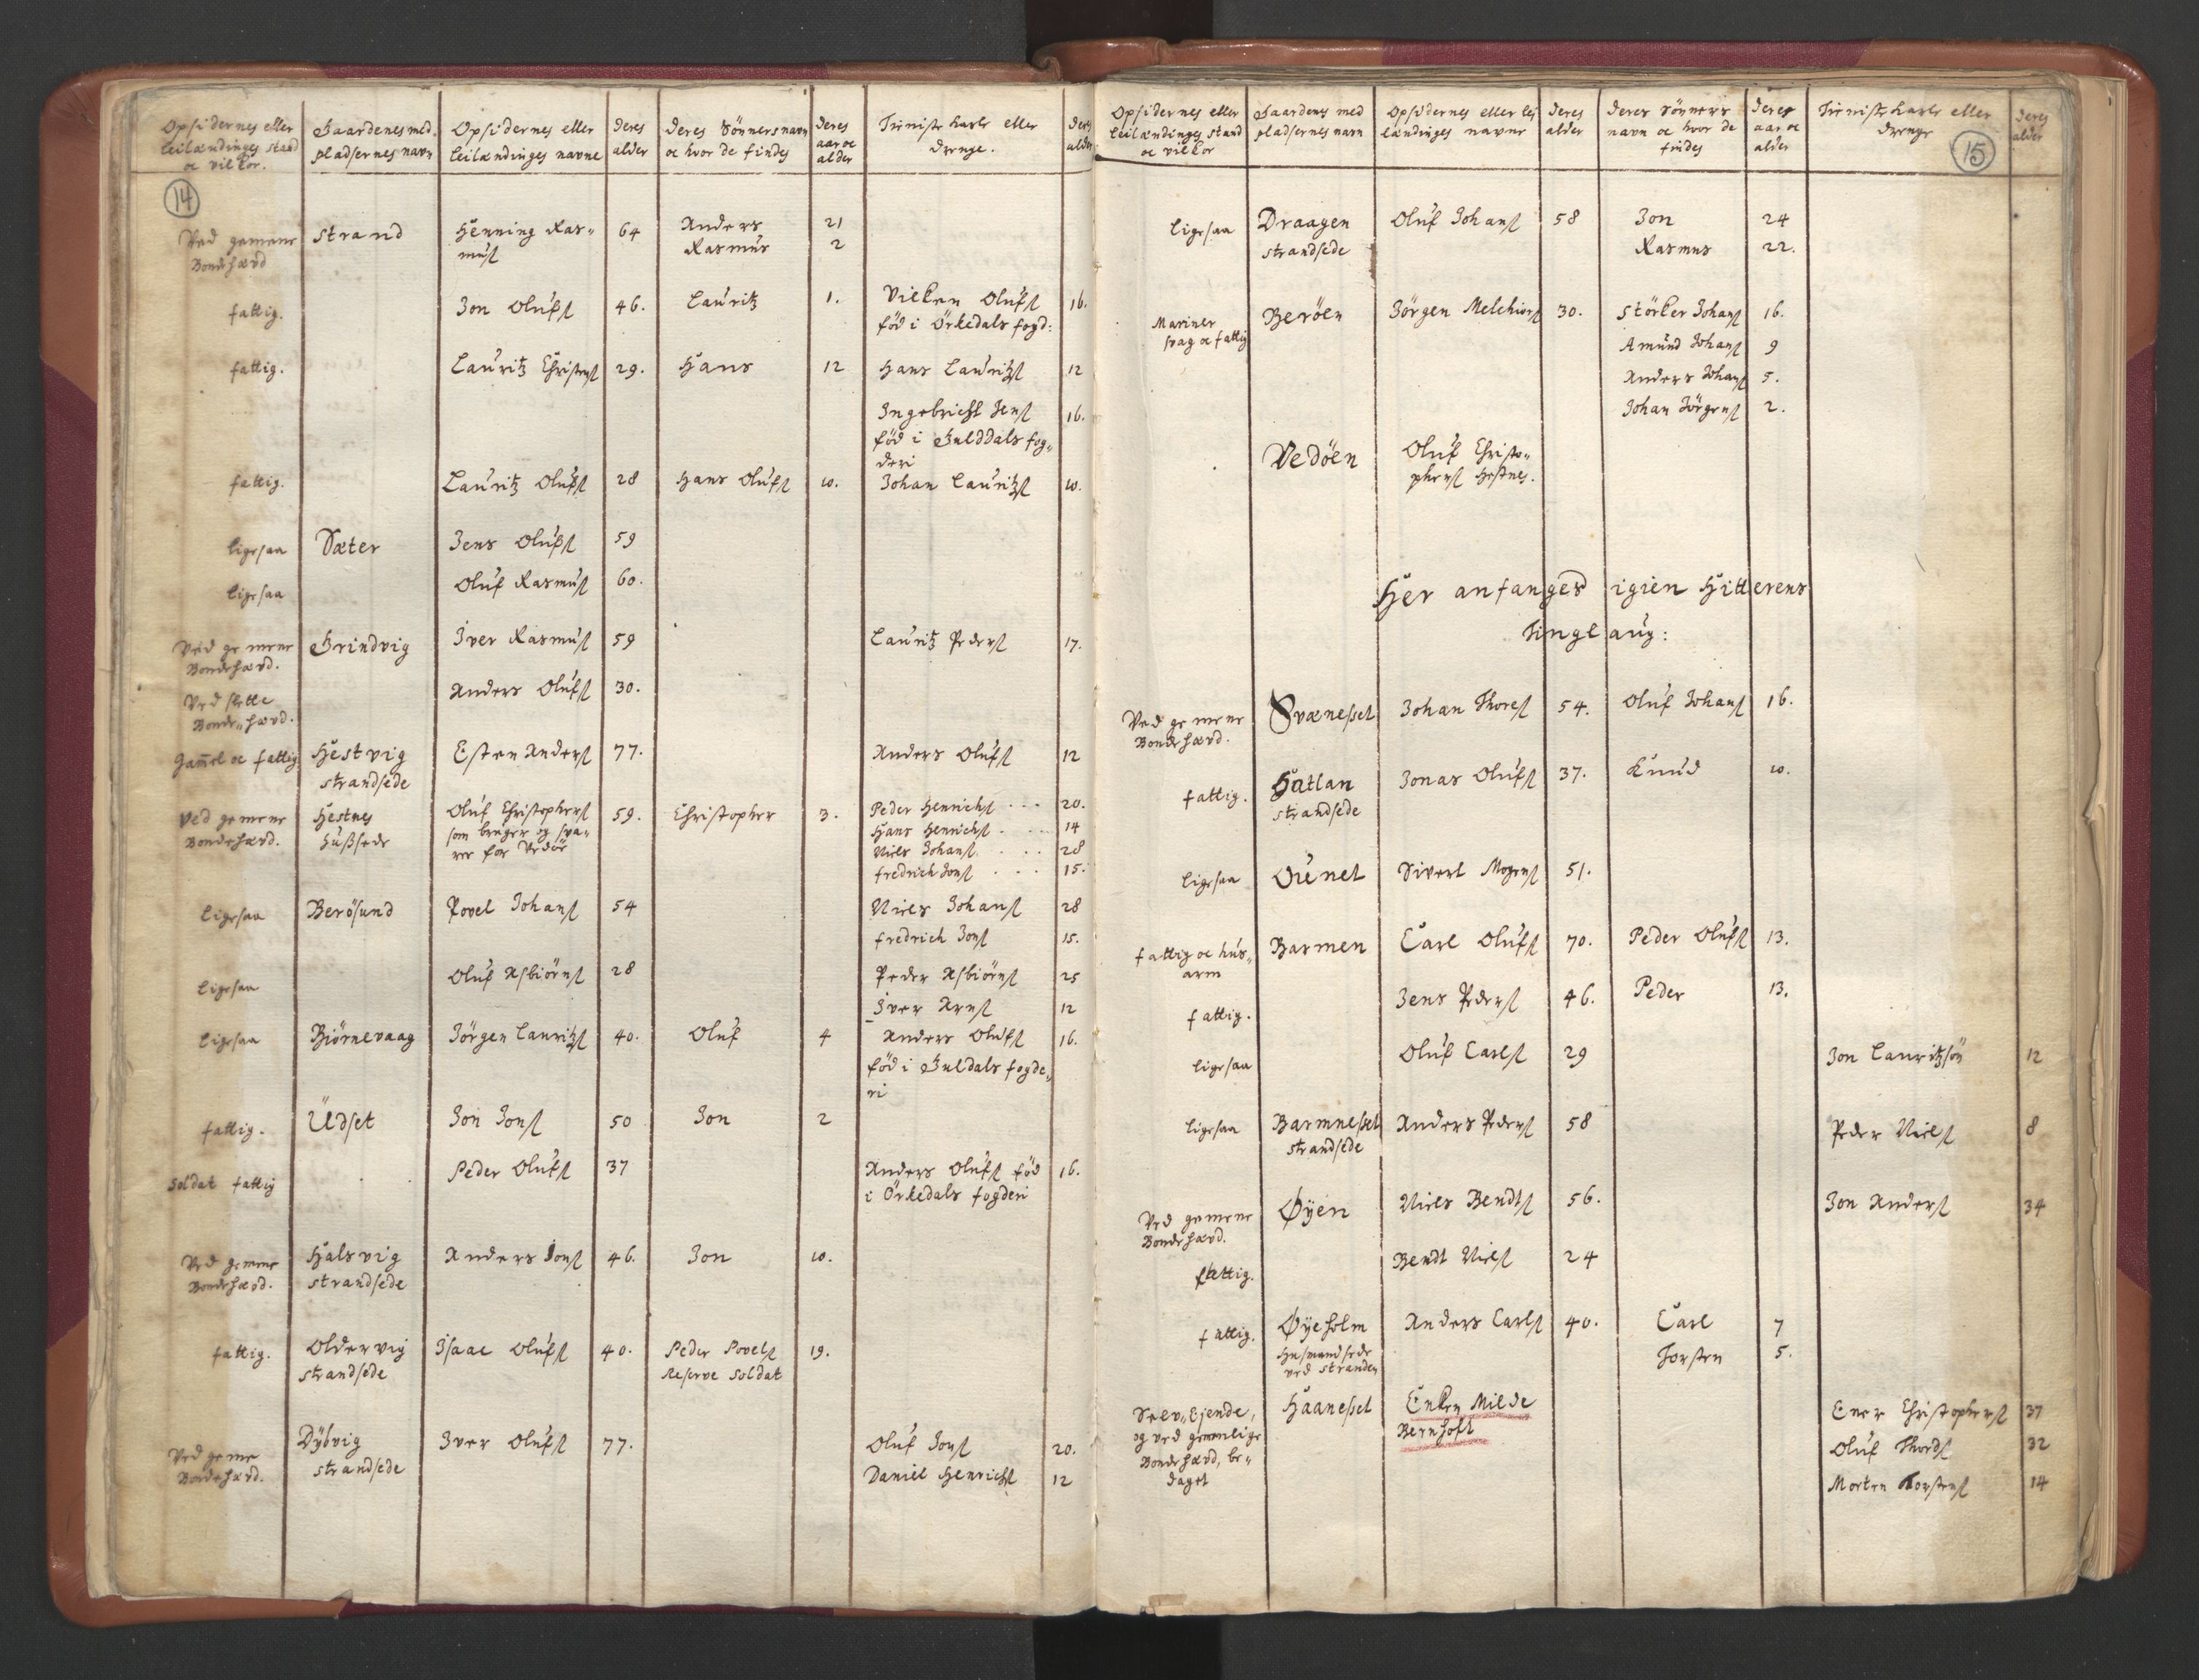 Opsidernes eller leilændinges stand oc vilkor. | Gaardenes med pladsernes navn | Opsidernes eller leilændinges navne | deres alder | deres Sønners navn oc hvor de findes | deres aar oc alder | Tieniste karle eller drenge. | deres alder
14
Ved gemene Bondehævd | Strand | Henning Rasmusſ | 64 | Anders | 21
Rasmus | 2
fattig. | Jon Olufſ | 46. | Lauritz | 1. | Vilken Olufſ | 16.
fød i Örkedals fogd:
fattig. | Lauritz Christensſ | 29. | Hans | 12 | Hans Lauritzſ | 12
Ingebricht Jensſ | 16.
fød i Guldals fog„
deri
fattig. | Lauritz Olufſ | 28 | Hans Olufſ | 10. | Johan Lauritzſ | 10.
ligesaa | Sæter | Jens Olufſ | 59
ligesaa | Oluf Rasmusſ | 60.
Ved gemene Bondehævd. | Grindvig | Iver Rasmusſ | 59 | Lauritz Pedersſ | 17.
Ved slette Bonde„hævd. | Anders Olufſ | 30.
Gam̄el oc fattig | Hestvig strandsede | Esten Andersſ | 77. | Anders Olufſ | 12
Ved gemene Bondehævd. | Hestnes hußsede | Oluf Christophersſ som bruger og svarer for Vedöe | 59. | Christopher | 3. | Peder Henrichsſ | 20.
Hans Henrichsſ | 14
Niels Johansſ | 28
fredrich Jonsſ | 15.
ligesaa | Berösund | Povel Johansſ | 54 | Niels Johansſ | 28
fredrich Jonsſ | 15.
ligesaa | Oluf Asbiörnsſ | 28 | Peder Asbiörnsſ | 25
Iver Arnsſ | 12
ligesaa | Biörnevaag | Jörgen Lauritzſ | 40. | Oluf | 4 | Anders Olufſ | 16.
fød i Guldals fogde„
ri
fattig. | Üdset | Jon Jonsſ | 50 | Jon | 2
Soldat fattig | Peder Olufſ | 37 | Anders Olufſ fød | 16.
i Örkedals fogderi
Ved gemene Bondehævd. | Halsvig strandsede | Anders Jonsſ | 46. | Jon | 10.
fattig. | Oldervig strandsede | Isaac Olufſ | 40. | Peder Povelsſ Reserve Soldat | 19.
Ved geme Bondehævd. | Dybvig strandsede | Iver Olufſ | 77. | Oluf Jonsſ | 20.
Daniel Henrichsſ | 12
Opsidernes eller leilændinges stand oc vilkor | Gaardenes med pladsernes navn | Opsidernes eller leilændinges navne | deres alder | deres Sønners navn oc hvor de findes | deres aar oc alder | Tieniste karle eller drenge | deres alder
15
ligesaa | Draagen strandsede | Oluf Johansſ | 58 | Jon | 24
Rasmus | 22.
Mariner svag oc fattig | Beröen | Jörgen Melchiorsſ | 30. | Störker Johansſ | 16.
Amund Johansſ | 9
Anders Johansſ | 5.
Johan Jörgensſ | 2.
Vedöen | Oluf Christo„
phersſ Hestnes.
Her anfanges igien Hitterens
Tinglaug:
Ved gemene Bondehævd. | Svæneßet | Johan Thoresſ | 54. | Oluf Johansſ | 16.
fattig. | Hatlan strandsede | Jonas Olufſ | 37. | Knud | 10.
ligesaa | Öunet | Sivert Mogensſ | 51.
fattig oc hus„arm | Barmen | Carl Olufſ | 70. | Peder Olufſ | 13.
fattig. | Jens Pedersſ | 46. | Peder | 13.
ligesaa | Oluf Carlsſ | 29 | Jon Lauritzsön | 12
ligesaa | Barmneßet strandsede | Anders Pedersſ | 58 | Peder Nielsſ | 8
Ved gemene Bondehævd. | Øyen | Niels Bendtsſ | 56. | Jon Andersſ | 34
fattig. | Bendt Nielsſ | 24
fattig. | Øyeholm Husmandsede ved stranden | Anders Carlsſ | 40. | Carl | 7
Torsten | 5.
Selv„Ejende, og ved gemenlige Bondehævd, be„daget | Haaneßet | Enken Milde Bernhoft | Ener Christophersſ | 37
Oluf Thordsſ | 32
Morten Torstensſ | 14